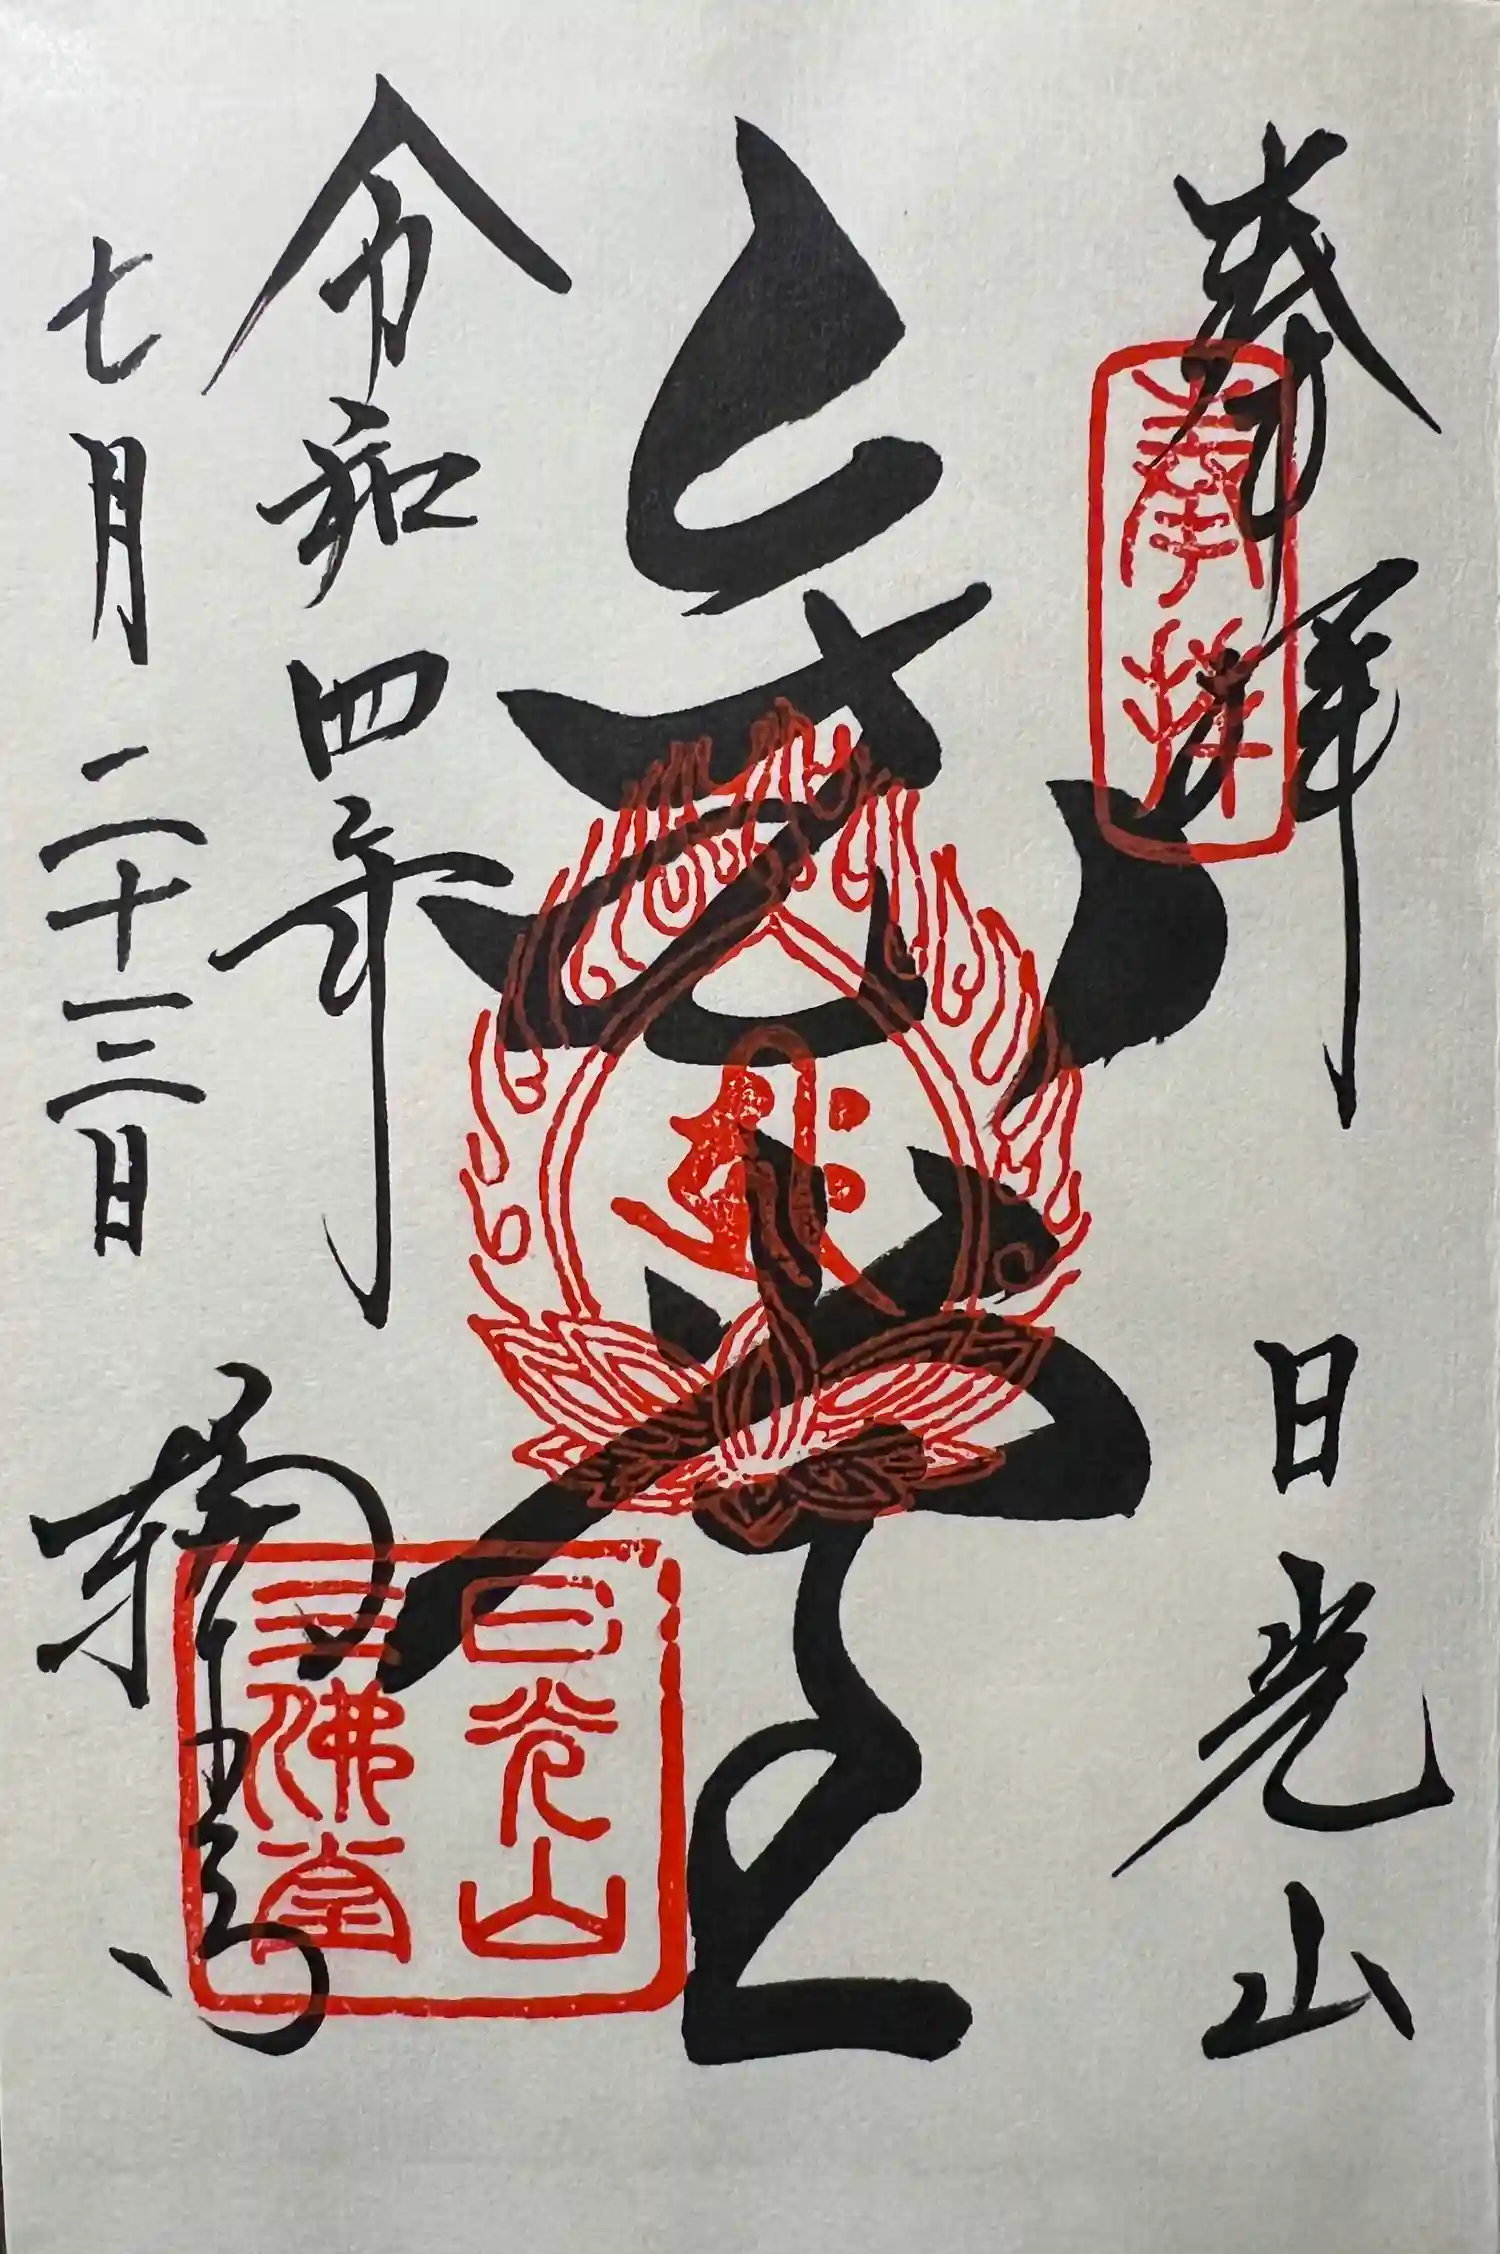 奉拝
日光山
奉拝
令和四年
七月二十三日
輪王寺
日光山
三佛堂